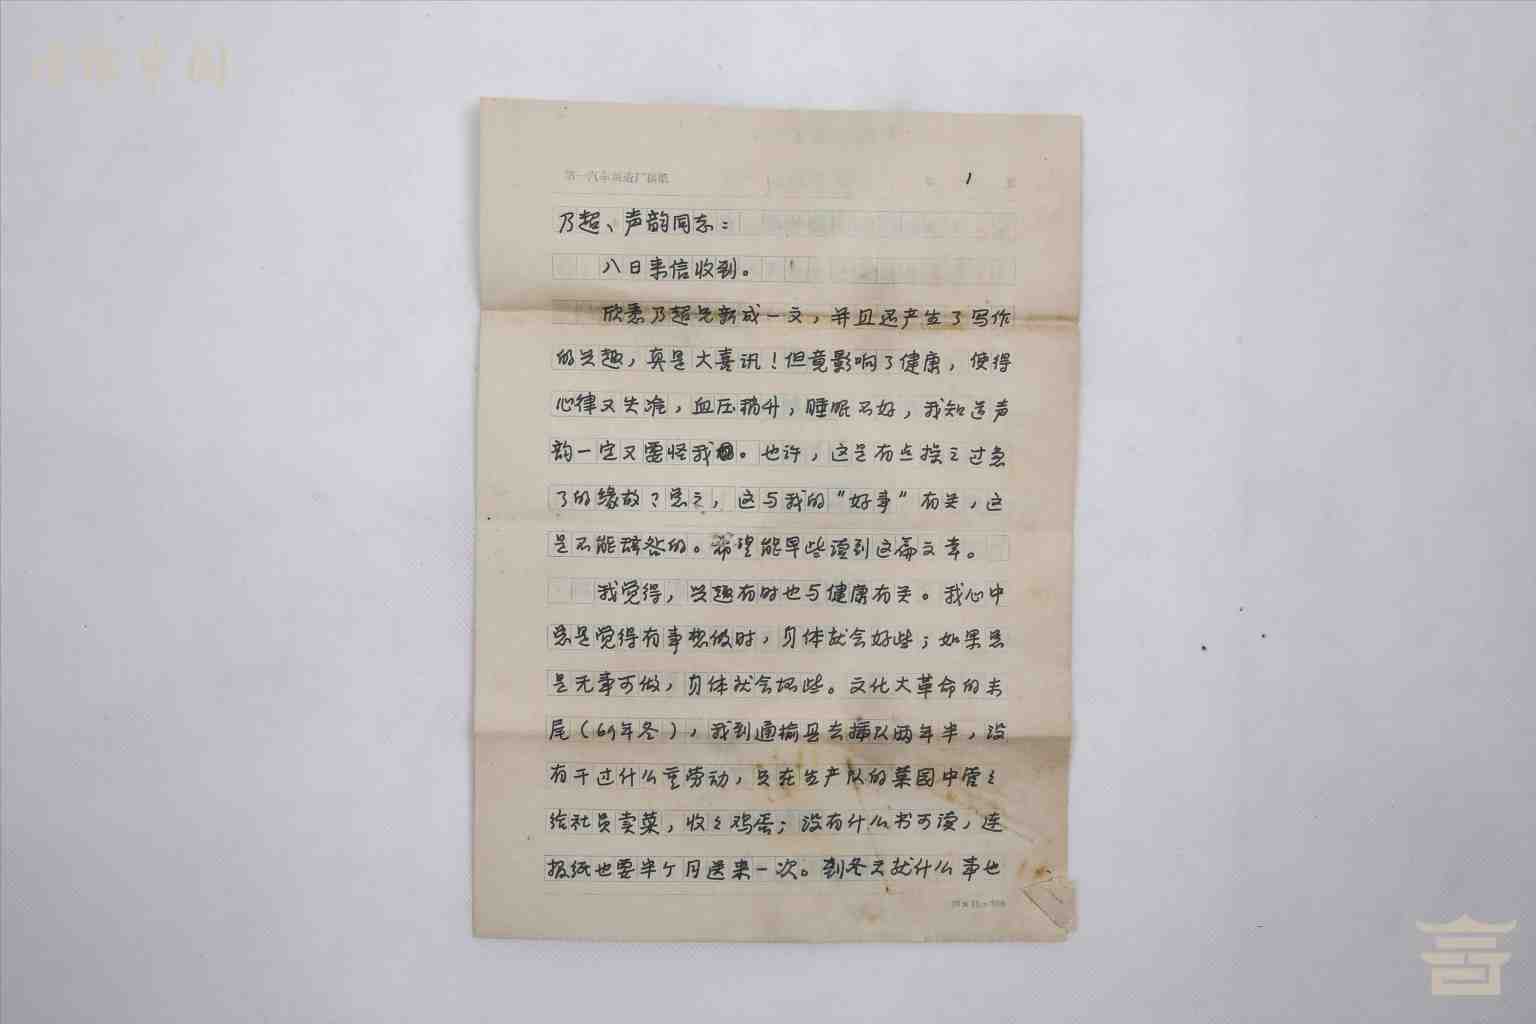 第一汽车制造厂稿纸
第 1 页
乃超、声韵同志：
八日来信收到。
欣悉乃超兄新成一文，并且还产生了写作
的兴趣，真是大喜讯！但竟影响了健康，使得
心律又失准，血压稍升，睡眠不好，我知道声
韵一定又要怪我。也许，这是有点操之过急
了的缘故？总之，这与我的“好事”有关，这
是不能辞咎的。希望能早些读到这篇文章。
我觉得，兴趣有时也与健康有关。我心中
总是觉得有事想做时，身体就会好些；如果总
是无事可做，身体就会坏些。文化大革命的末
尾（69年冬），我到通榆县去插队两年半，没
有干过什么重劳动，只在生产队的菜园中管管
给社员卖菜，收收鸡蛋；没有什么书可读，连
报纸也要半个月送来一次。到冬天就什么事也